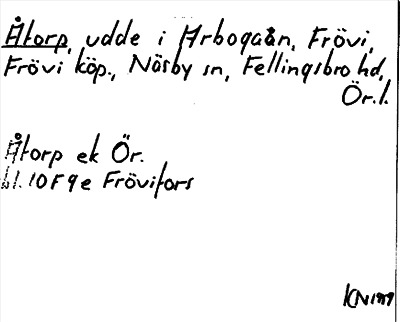 Åtorp, udde i Arbogaån, Frövi,
Frövi köp., Näsby sn, Fellingsbro hd,
Ör.l.
Åtorp ek Ör.
bl. 10F 9e Frövifors
KN 1979